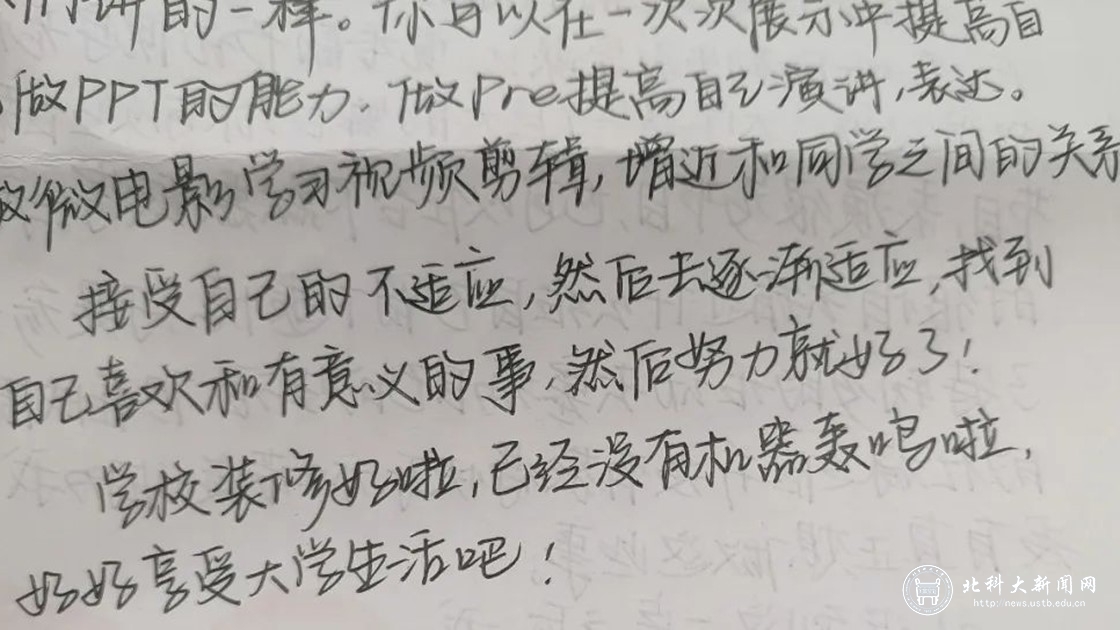 讲的一样。你可以在一次次展示中提高自
做PPT的能力，做Pre提高自己演讲，表达。
微电影学习视频剪辑，增近和同学之间的关系
接受自己的不适应，然后去逐渐适应，找到
自己喜欢和有意义的事，然后努力就好了！
学校装修好啦，已经没有机器轰鸣啦，
好好享受大学生活吧！
北科大新闻网
http://news.ustb.edu.cn